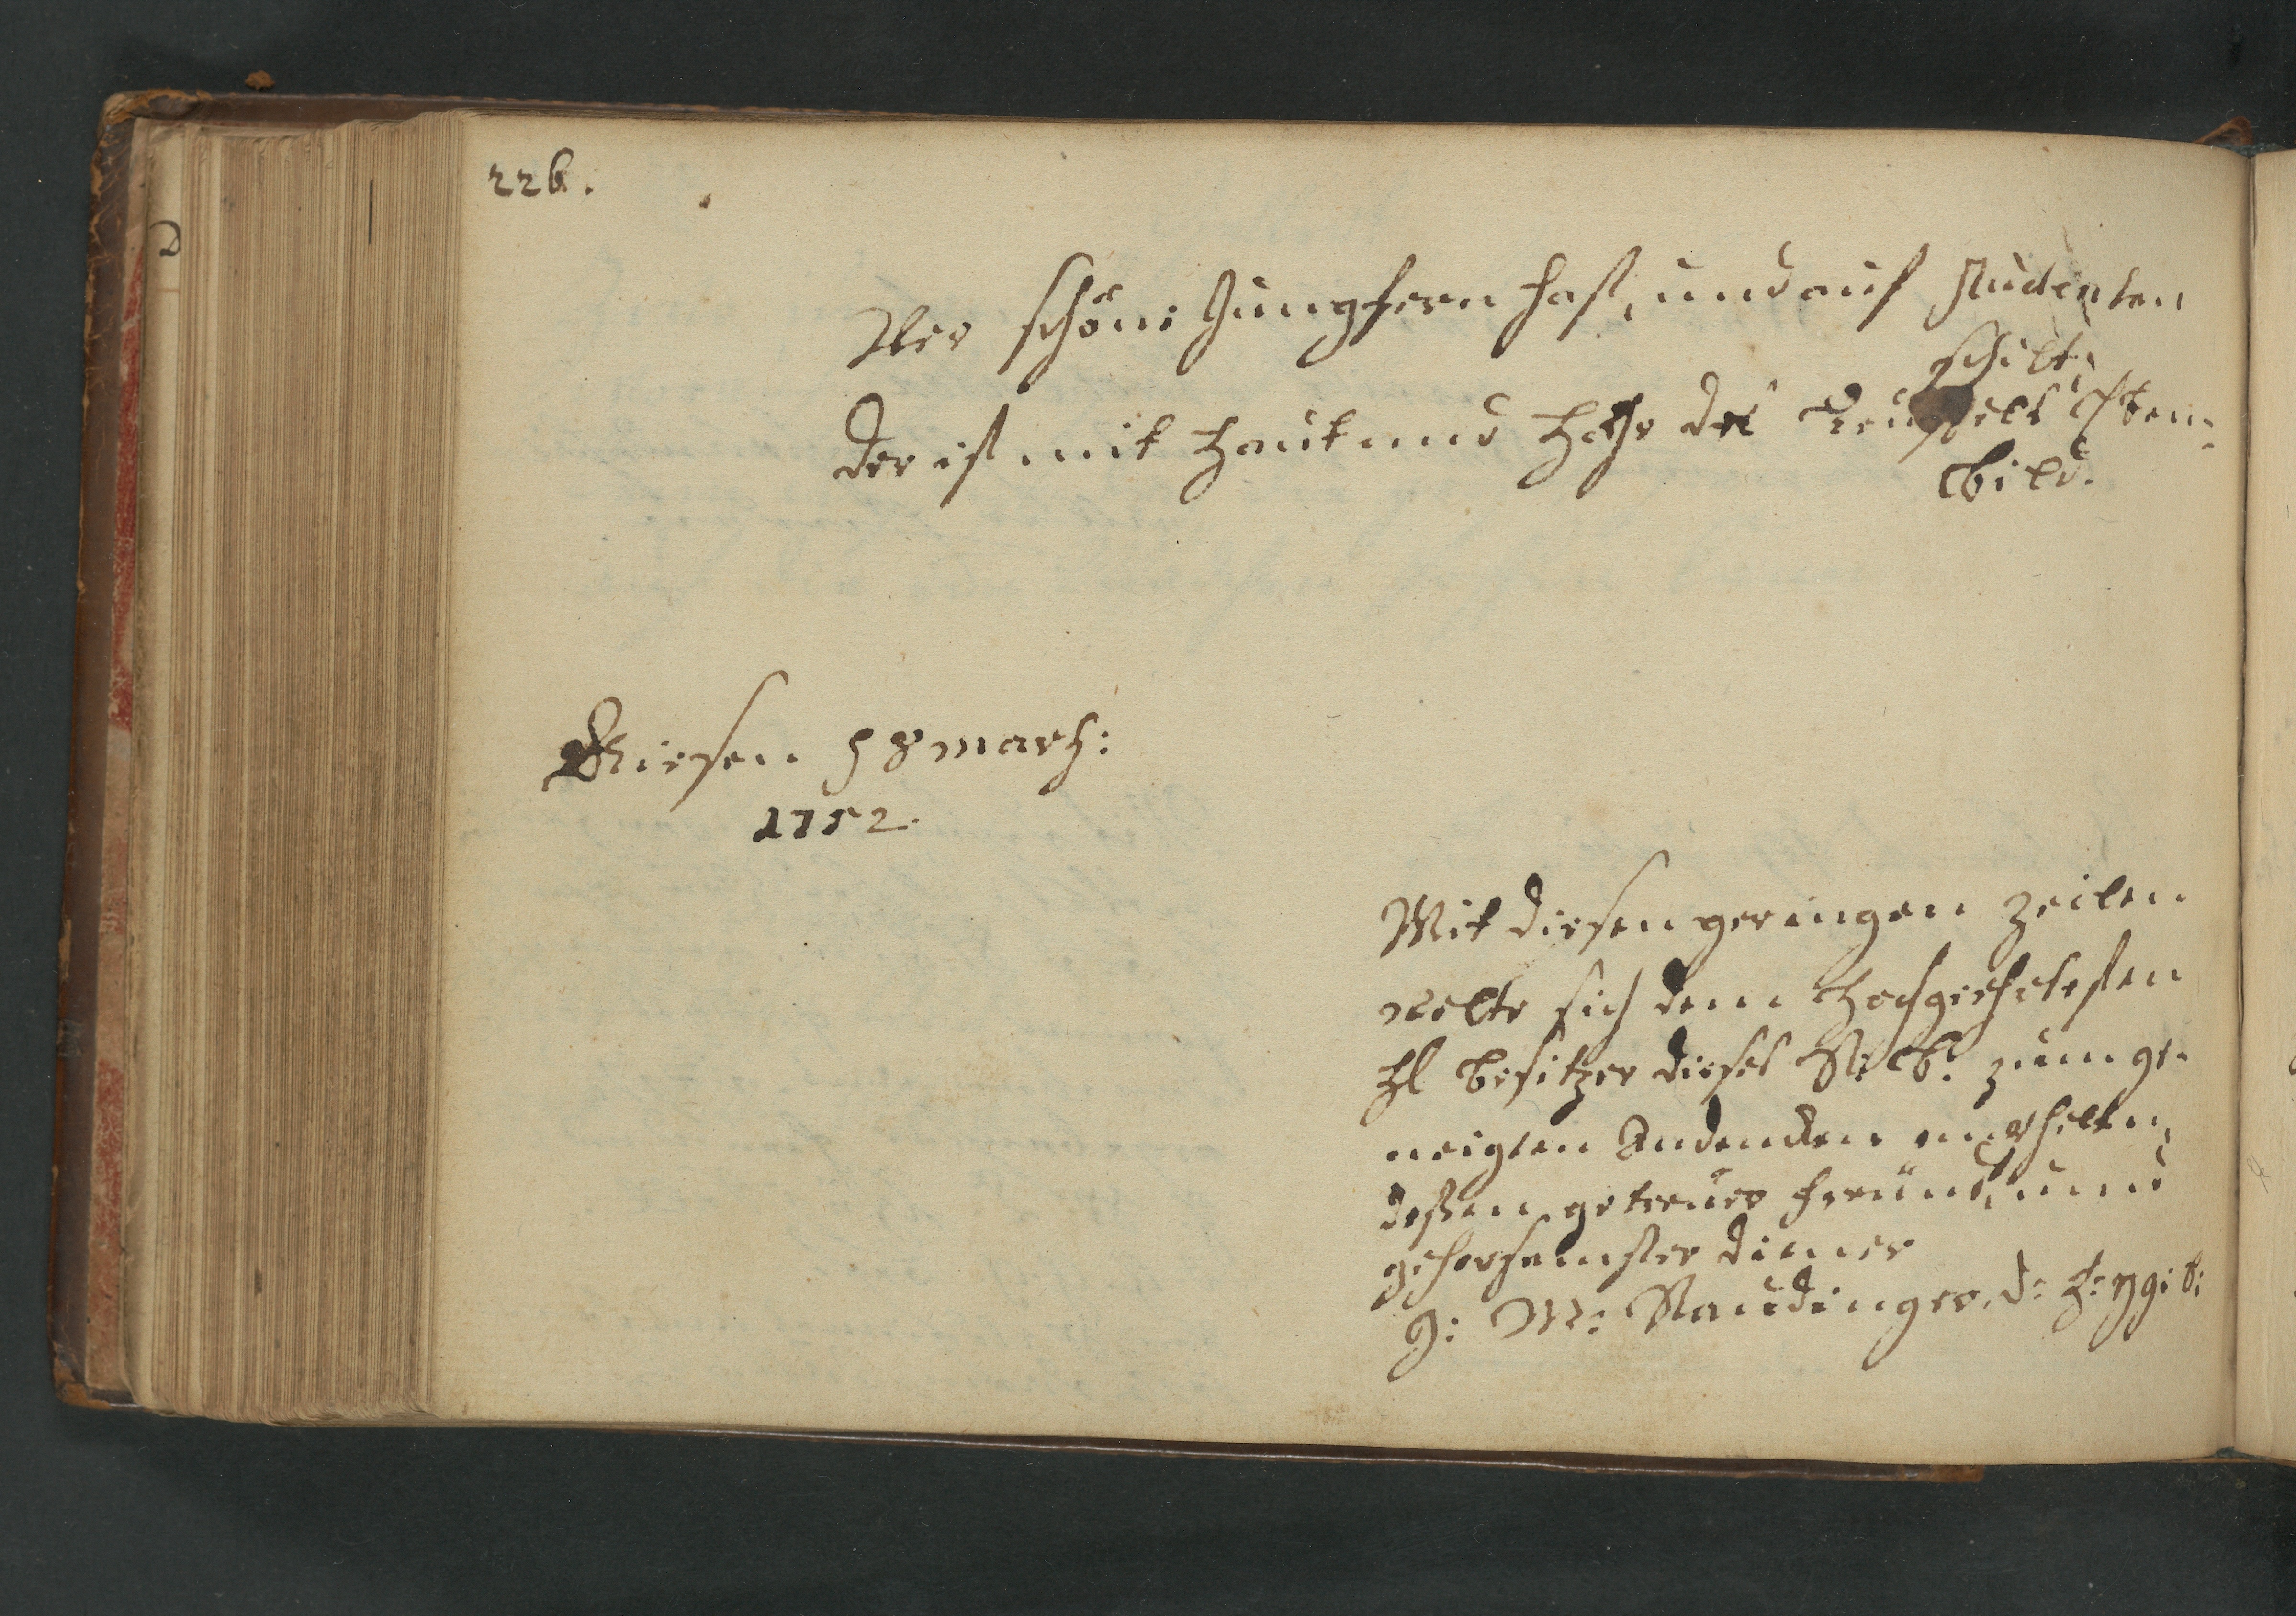 226.
Wer schöne Jungfern hast, und auf studenten
schilt,
der ist mit Haut und Hahr des Teuffels Eben-
bild.
Giesen 8 marh:
1752.
Mit diesen geringen Zeilen
wolte sich dem Hochgeehrtesten
H Besitzer dieses St. B. zum ge-
neigten Andencken empfhelen,
dessen getreuer freund, und
gehorsamster diener
J: M: Staudinger. d: